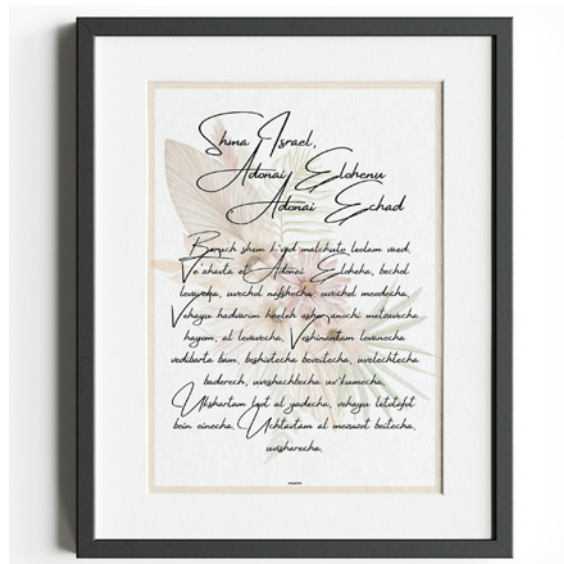 Shma Israel,
Adonai Elohenu
Adonai Echad
Baruch shem k'vod malchuto leolam vaed,
Ve'ahavta et Adonai Eloheha, bechol
levavcha, uvechol nafshecha uvechol meodecha,
Vehayu hadvarim haeleh asher anochi metzavecha
hayom, al levavecha, Veshinantam levanecha
vedibarta bam, beshivtecha beveitecha, uvelechtecha
baderech, uveshachbecha uv'kumecha,
Ukshartam leot al yadecha, vehayu letotafot
bein einecha, Uchtavtam al mezuzot beitecha,
uvisharecha,